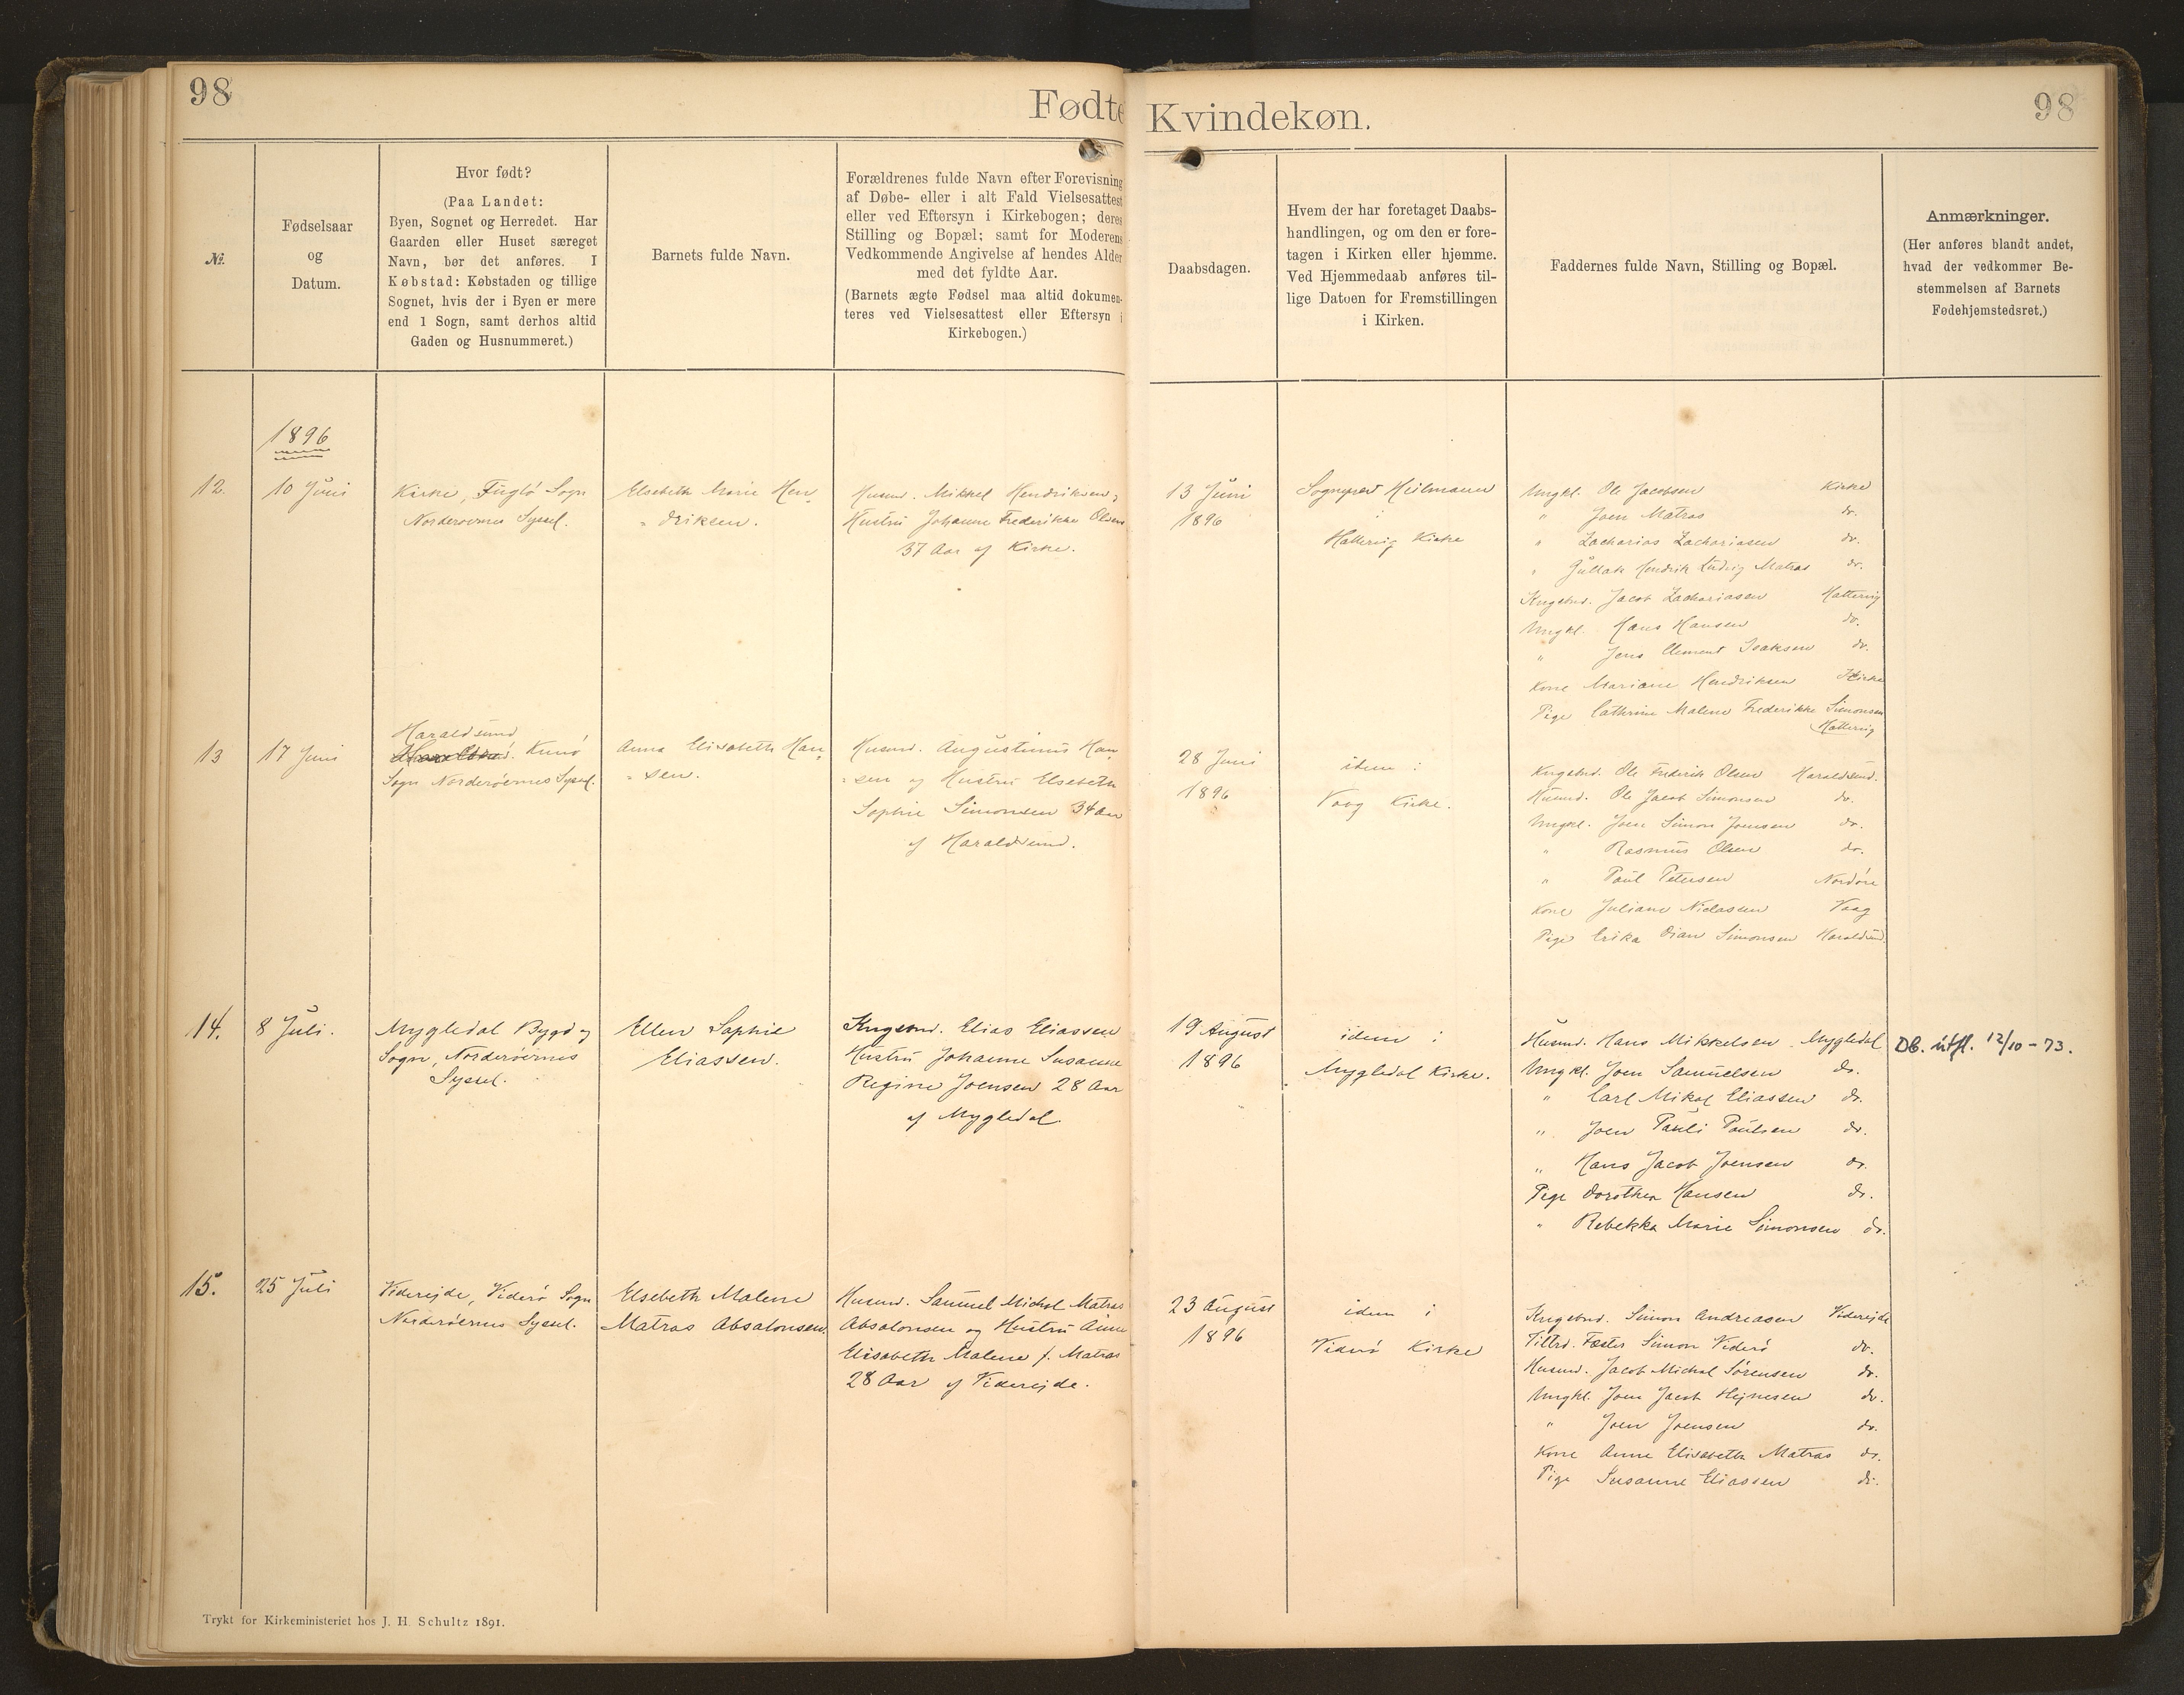 98
Fødte
Kvindekøn.
98
№.
Fødselsaar
og
Datum.
Hvor født?
(Paa Landet:
Byen, Sognet og Herredet. Har
Gaarden eller Huset særeget
Navn, bør det anføres. I
Købstad: Købstaden og tillige
Sognet, hvis der i Byen er mere
end 1 Sogn, samt derhos altid
Gaden og Husnummeret.)
Barnets fulde Navn.
Forældrenes fulde Navn efter Forevisning
af Døbe- eller i alt Fald Vielsesattest
eller ved Eftersyn i Kirkebogen; deres
Stilling og Bopæl; samt for Moderens
Vedkommende Angivelse af hendes Alder
med det fyldte Aar.
(Barnets ægte Fødsel maa altid dokumen-
teres ved Vielsesattest eller Eftersyn i
Kirkebogen.)
Daabsdagen.
Hvem der har foretaget Daabs-
handlingen, og om den er fore-
tagen i Kirken eller hjemme.
Ved Hjemmedaab anføres til-
lige Datoen for Fremstillingen
i Kirken.
Faddernes fulde Navn, Stilling og Bopæl.
Anmærkninger.
(Her anføres blandt andet,
hvad der vedkommer Be-
stemmelsen af Barnets
Fødehjemstedsret.)
1896
12.
10 Juni
Kirke, Fuglö Sogn
Norderöernes Syssel.
Elsebeth Marie Hen
driksen.
Husmd. Mikkel Hendriksen,
Hustru Johanne Frederikke Olsen
37 Aar af Kirke.
13 Juni
1896
Sognepræst Heilmann
i
Hattervig Kirke
Ungkl. Ole Jacobsen Kirke
" Joen Matras do.
" Zacharias Zachariasen do.
" Gullak Hendrik Ludvig Matras do.
Kngsbnd. Jacob Zachariasen Hattervig
Ungkl. Hans Hansen do.
" Jens Clement Isaksen do.
Kone Mariane Hendriksen Kirke
Pige Cathrine Malene Frederikke Simonsen
Hattervig
13
17 Juni
Haraldsund
Kunö
Sogn Norderöernes Syssel.
Anna Elisabeth Han
sen.
Husmd. Augustinus Han
sen og Hustru Elsebeth
Sophie Simonsen 34 Aar
af Haraldsund.
28 Juni
1896
idem i
Vaag Kirke.
Kngsbnd. Ole Frederik Olsen Haraldsund.
Husmd. Ole Jacob Simonsen do.
Ungkl. Joen Simon Joensen do.
" Rasmus Olsen do.
" Poul Petersen Nordöre
Kone Juliane Niclasen Vaag
Pige Erika Dian Simonsen Haraldsund.
14.
8 Juli.
Mygledal Bygd og
Sogn, Norderöernes
Syssel.
Ellen Sophie
Eliassen.
Kngsbnd. Elias Eliassen
Hustru Johanne Susanne
Regine Joensen 28 Aar
af Mygledal.
19 August
1896
idem i
Mygledal Kirke.
Husmd. Hans Mikkelsen Mygledal
Ungkl. Joen Samuelsen do.
" Carl Mikal Eliassen do.
" Joen Pauli Poulsen do.
" Hans Jacob Joensen do.
Pige Dorothea Hansen do.
" Rebekka Marie Simonsen do.
Db. útfl. 12/10-73.
15.
25 Juli
Viderejde, Viderö Sogn
Norderöernes Syssel.
Elsebeth Malene
Matras Absalonsen.
Husmd. Samuel Michal Matras
Absalonsen og Hustru Anna
Elisabeth Malene f. Matras
28 Aar af Viderejde.
23 August
1896
idem i
Viderö Kirke
Kngsbnd. Simon Andreasen Viderejde
Tiltrd. Fæster Simon Viderö do.
Husmd. Jacob Michal Sörensen do.
Ungkl. Joen Jacob Hejnesen do.
" Joen Joensen do.
Kone Anne Elisabeth Matras do.
Pige Susanne Eliassen do.
Trykt for Kirkeministeriet hos J. H. Schultz 1891.